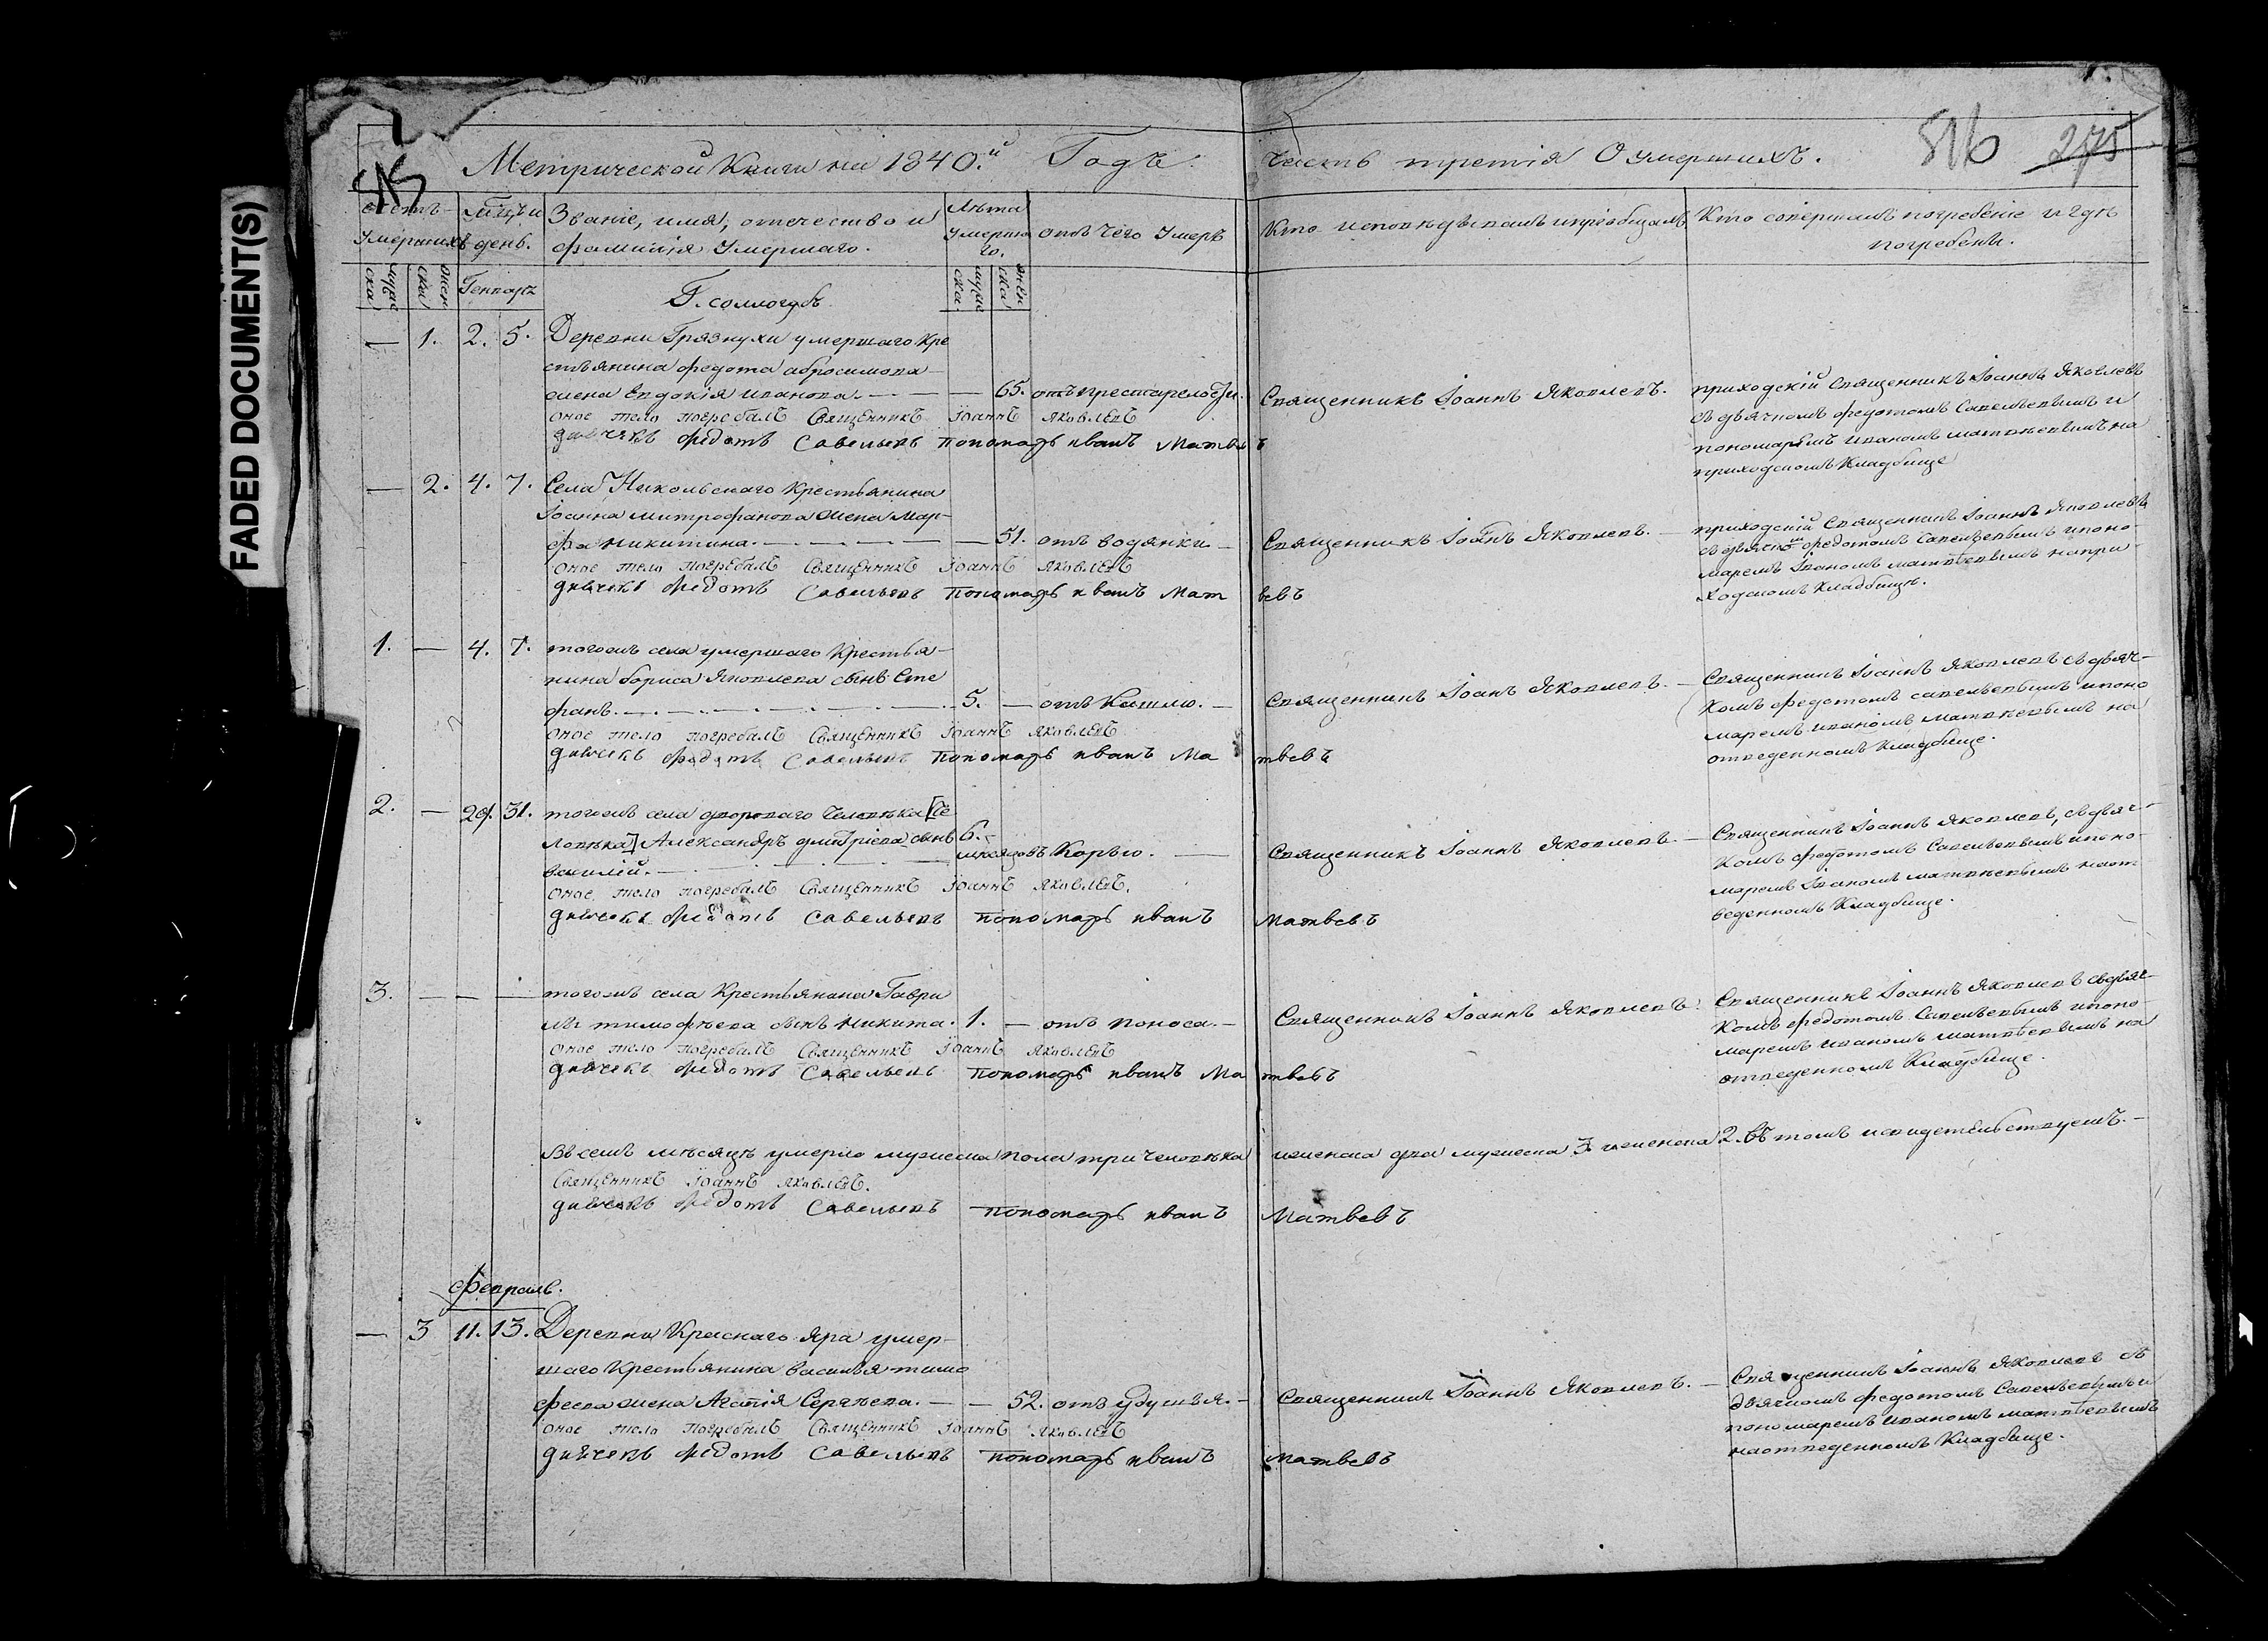 FADED DOCUMENT(S)
515
Метрической Книги на 1840.й Годъ.
часть третія О умершихъ.
816
275
Счетъ умершихъ
Мѣсяцъ и день.
Званіе, имя, отечество и
фамилія Умершаго.
Лѣта
Умерша
го.
отъ чего Умеръ
Кто исповѣдывалъ и пріобщалъ
Кто совершилъ погребеніе и гдѣ
погребены.
муже
ска
жен
ска
Генварь
Г. Соллогубъ
муже
ска.
жен
ска
— 1. 2. 5. Деревни Грязнухи умершаго Кре
стьянина федота абросимова
жена Евдокія иванова. — — 65. отъ престарелости.
оное тело погребалъ Священникъ Іоаннъ Яковлевъ
дьячекъ Федотъ Савельевъ пономарь иванъ Матвѣвъ
Священникъ Іоаннъ Яковлевъ.
приходскій Священникъ Іоаннъ Яковлевъ
съ дьячкомъ федотомъ Савельевымъ и
пономаремъ иваномъ матвѣевымъ на
приходскомъ Кладбище
— 2. 4. 7. Села Никольскаго Крестьянина
Іоанна митрофанова жена Мар-
фа никитина. — — 51. отъ водянки —
оное тело погребалъ Священникъ Іоаннъ Яковлевъ
дьячекъ Федотъ Савельевъ пономарь иванъ Мат вевъ
Священникъ Іоаннъ Яковлевъ. —
приходскій Священникъ Іоаннъ Яковлевъ
съ дьячкомъ федотомъ Савельевымъ и поно-
маремъ Іваномъ матвѣевымъ на при-
ходскомъ Кладбище.
1. — 4. 7. тогожъ села умершаго Крестья-
нина бориса Яковлева сынъ Сте
фанъ. — 5. — отъ Кашлю. —
оное тело погребалъ Священникъ Іоаннъ Яковлевъ
дьячекъ Федотъ Савельевъ пономарь иванъ Ма твевъ
Священникъ Іоанъ Яковлевъ. —
Священникъ Іоаннъ Яковлевъ съ дьяч-
комъ федотомъ савельевымъ и поно
маремъ иваномъ матвѣевымъ на
отведенномъ Кладбище.
2. — 29. 31. тогожъ села двороваго Человѣка [Че
ловѣка] Александръ дмитріева сынъ 6.
василій. — мѣсяцовъ Корью. —
оное тело погребалъ Священникъ Іоаннъ Яковлевъ.
дьячекъ Федотъ Савельевъ пономарь иванъ Матвевъ
Священникъ Іоаннъ Яковлевъ. —
Священникъ Іоаннъ Яковлевъ, съ дьяч-
комъ федотомъ Савельевымъ и поно-
маремъ Іваномъ матвѣевымъ на от
веденномъ Кладбище.
3. — — — тогожъ села Крестьянина Гаври
лы тимофѣева сынъ никита. 1. — отъ поноса. —
оное тело погребалъ Священникъ Іоаннъ Яковлевъ
дьячекъ Федотъ Савельевъ пономарь иванъ Ма твевъ
Священникъ Іоаннъ Яковлевъ.
Священникъ Іоаннъ Яковлевъ съ дьяч-
комъ федотомъ Савельевымъ и поно-
маремъ иваномъ матвѣевымъ на
отведенномъ Кладбище.
Въ семъ мѣсяцѣ умерло мужеска пола три Человѣка женска два мужеска 3 женска 2. въ томъ и свидетельствуемъ. —
Священникъ Іоаннъ Яковлевъ.
дьячекъ Федотъ Савельевъ пономарь иванъ Матвевъ
Февраль.
— 3 11. 13. Деревни Краснаго Яра умер-
шаго Крестьянина василья тимо
феева жена Агафія Сергѣева. — — 52. отъ удушья. —
оное тело погребалъ Священникъ Іоаннъ Яковлевъ
дьячекъ Федотъ Савельевъ пономарь иванъ Матвевъ
Священникъ Іоаннъ Яковлевъ. —
Священникъ Іоаннъ Яковлевъ съ
дьячкомъ федотомъ Савельевымъ и
пономаремъ иваномъ матвѣевымъ
на отведенномъ Кладбище.